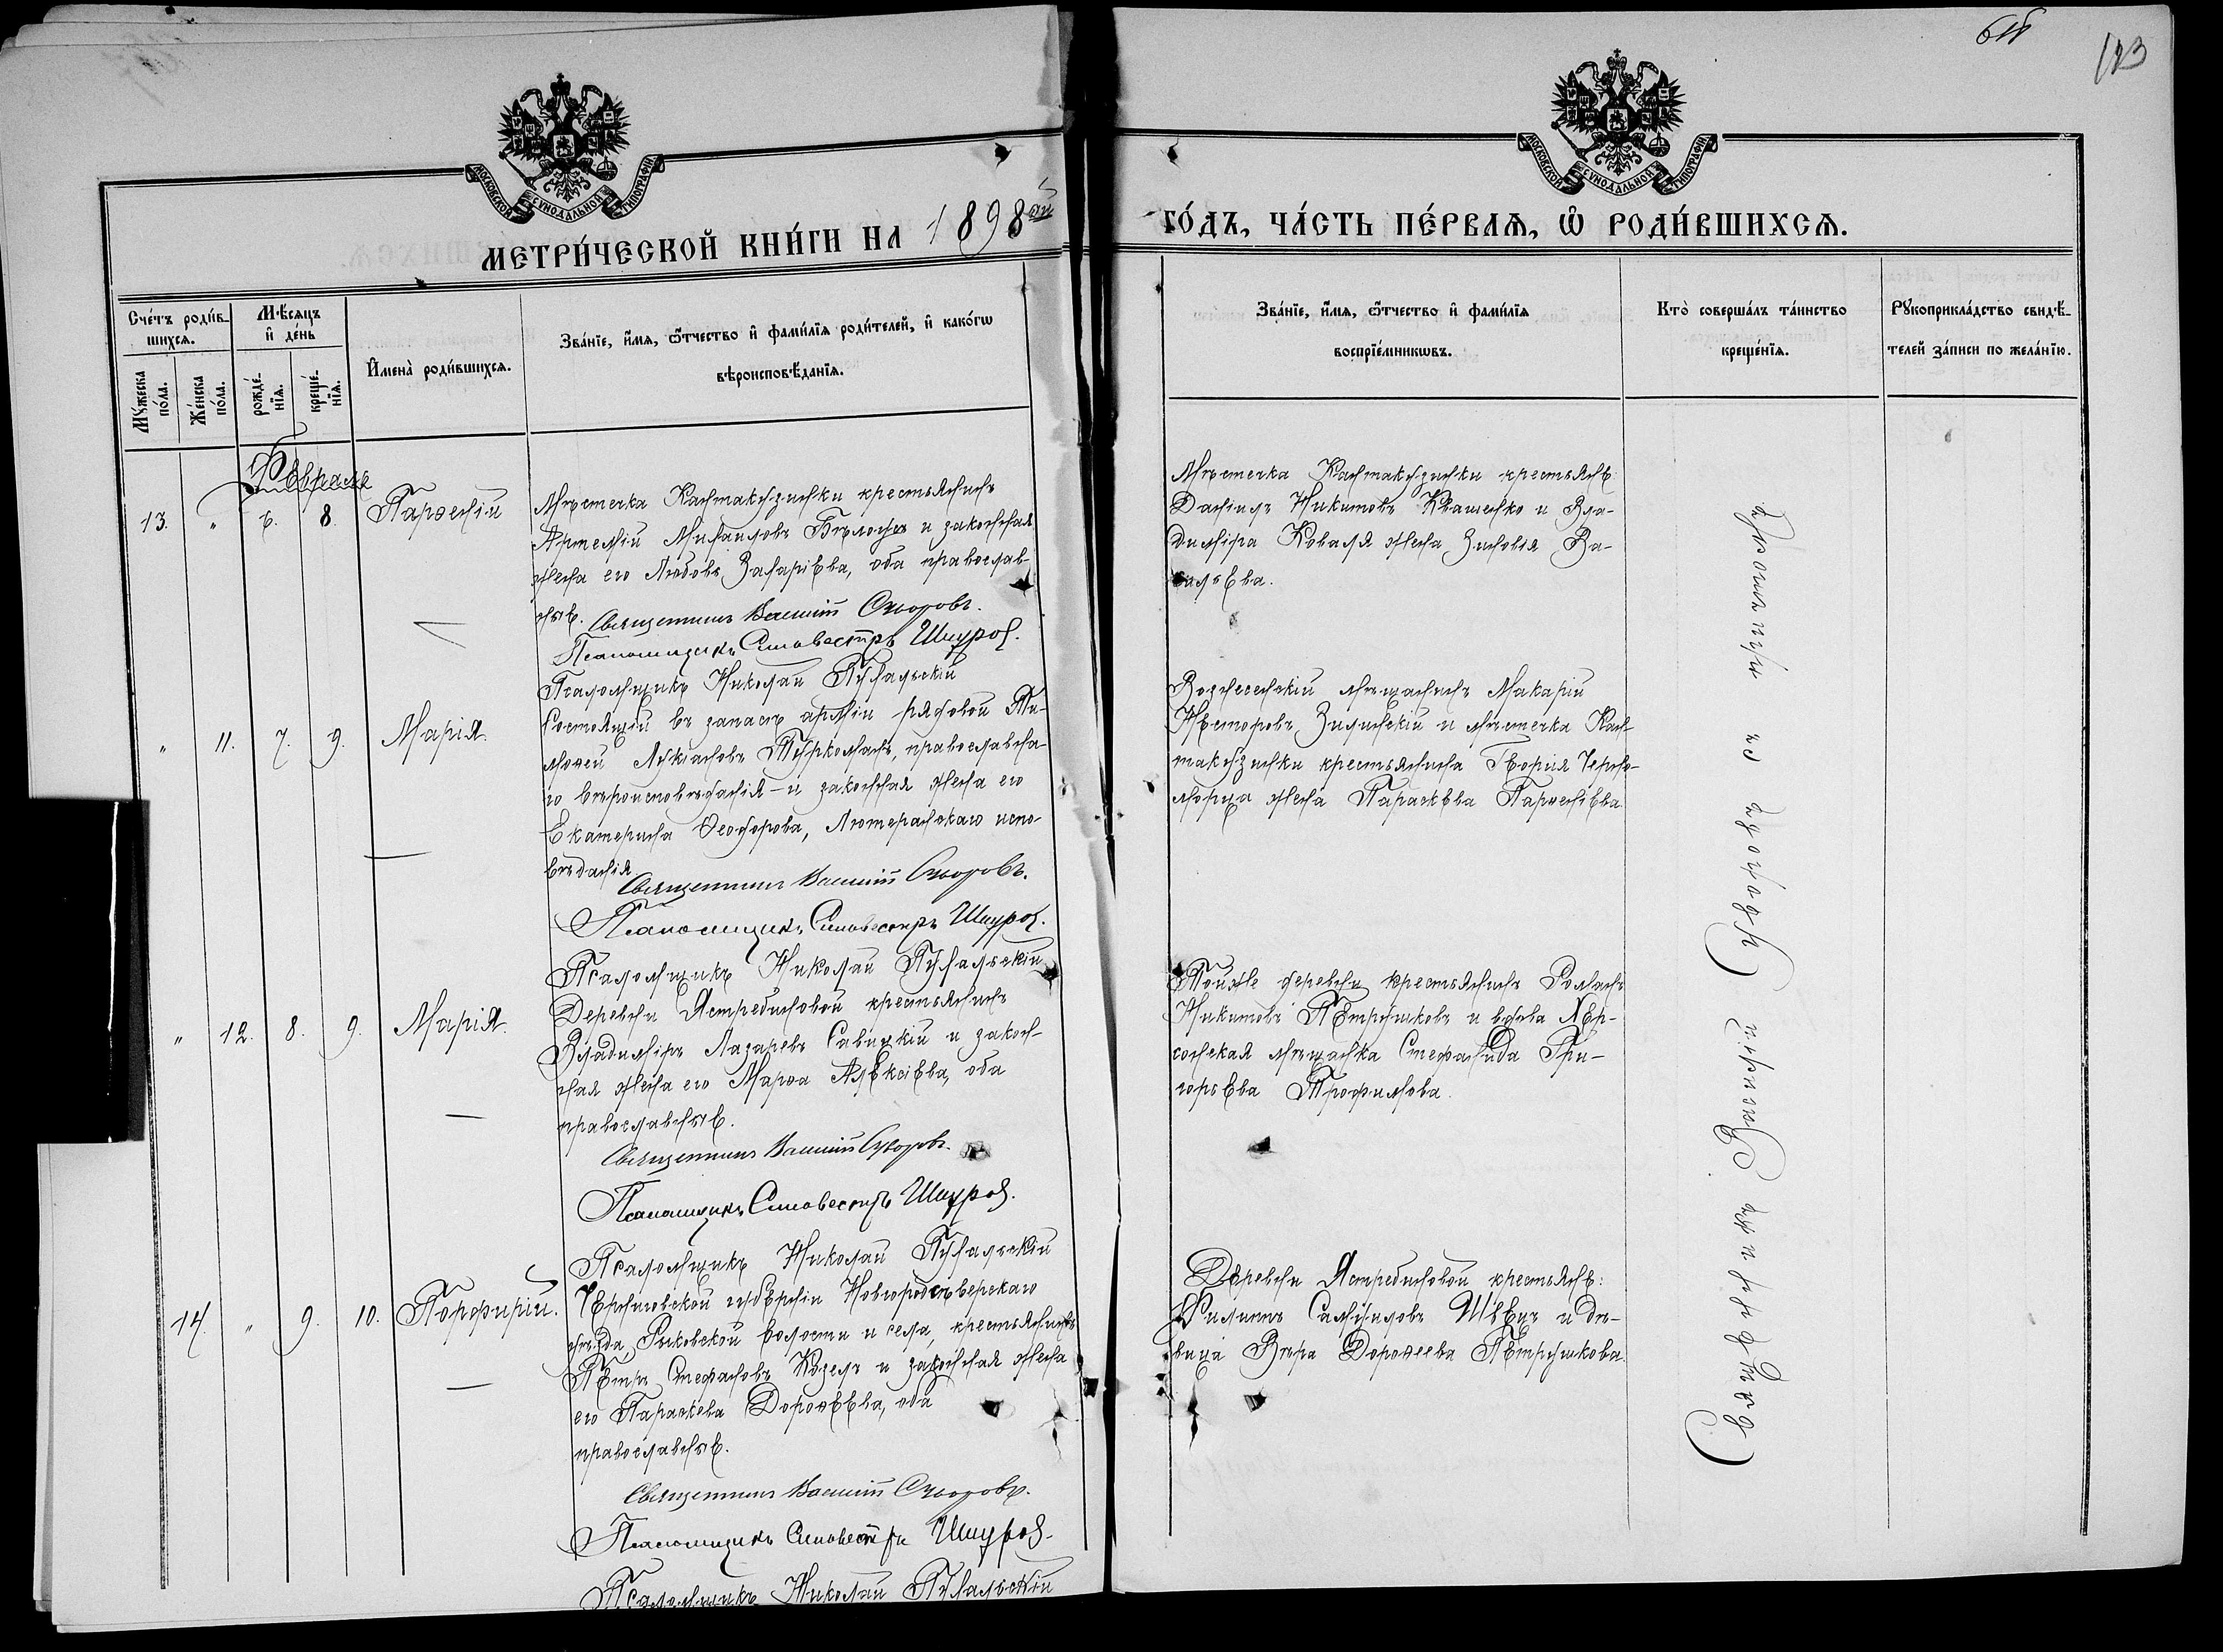 123
МОСКОВСКОЙ СѴНОДАЛЬНОЙ ТИПОГРАФІИ
МОСКОВСКОЙ СѴНОДАЛЬНОЙ ТИПОГРАФІИ
МЕТРИ́ЧЕСКОЙ КНИ́ГИ НА 1898ой
ГО́ДЪ, ЧА́СТЬ ПЕ́РВАѦ, Ѿ РОДИ́ВШИХСѦ.
Сче́тъ роди́в-
шихсѧ.
Мꙋ́жеска по́ла.
Же́нска по́ла.
Мѣ́сѧцъ
и҆ де́нь
рожде́-
нїѧ.
креще́-
нїѧ.
И҆мена̀ роди́вшихсѧ.
Зва́нїе, и҆́мѧ, ѻ҆́тчество и҆ фами́лїѧ роди́телей, и҆ како́гѡ
вѣроисповѣ́данїѧ.
Зва́нїе, и҆́мѧ, ѻ҆́тчество и҆ фами́лїѧ
воспрїе́мникѡвъ.
Кто̀ соверша́лъ та́инство
креще́нїѧ.
Рꙋкоприкла́дство свидѣ́-
телей за́писи по жела́нїю.
Февраля
13. " 6. 8. Парѳеній
Мѣстечка Кантакузинки крестьянинъ
Артемій Михаиловъ и законная
жена его Любовь Захаріева, оба православ-
ные. Священникъ Василій Суворовъ.
Псаломщикъ Сильвестръ
Псаломщикъ Николай
Мѣстечка Кантакузинки крестьяне:
Даніилъ Никитовъ Квашенко и Вла-
диміра Коваля жена Зиновія Ва-
сильева.
" 11. 7. 9. Марія.
Состоящій въ запасѣ арміи рядовой Ти-
моѳей Лукіановъ Туркоманъ, православна-
го вѣроисповѣданія - и законная жена его
Екатерина Ѳеодорова, Лютеранскаго испо-
вѣданія
Священникъ Василій Суворовъ.
Псаломщикъ Сильвестръ
Псаломщикъ Николай
Вознесенскій мѣщанинъ Макарій
Несторовъ Зилинскій и мѣстечка Кан-
такузинки крестьянина Георгія Черно-
морца жена Параскева Парѳеніева
" 12. 8. 9. Марія.
Деревни Ястребиновой крестьянинъ
Владиміръ Лазаревъ Савицкій и закон-
ная жена его Марѳа Алексіева, оба
православные.
Священникъ Василій Суворовъ.
Псаломщикъ Сильвестръ
Псаломщикъ Николай
Тойже деревни крестьянинъ Романъ
Никитовъ Петрушковъ и вдова Хер-
сонская мѣщанка Стефанида Гри-
горьева Трофимова.
14. " 9. 10. Порфирій.
Черниговской губерніи Новгородсѣверскаго
уѣзда, Рыковской волости и села, крестьянинъ
Петръ Стефановъ Козелъ и законная жена
его Параскева Дороѳеева, оба
православные.
Священникъ Василій Суворовъ.
Псаломщикъ Сильвестръ
Псаломщикъ Николай
Деревни Ястребиновой крестьяне:
Филиппъ Самуиловъ Швецъ и дѣ-
вица Вѣра Дороѳеева Петрушкова.
Священникъ Василій Суворовъ съ причтомъ